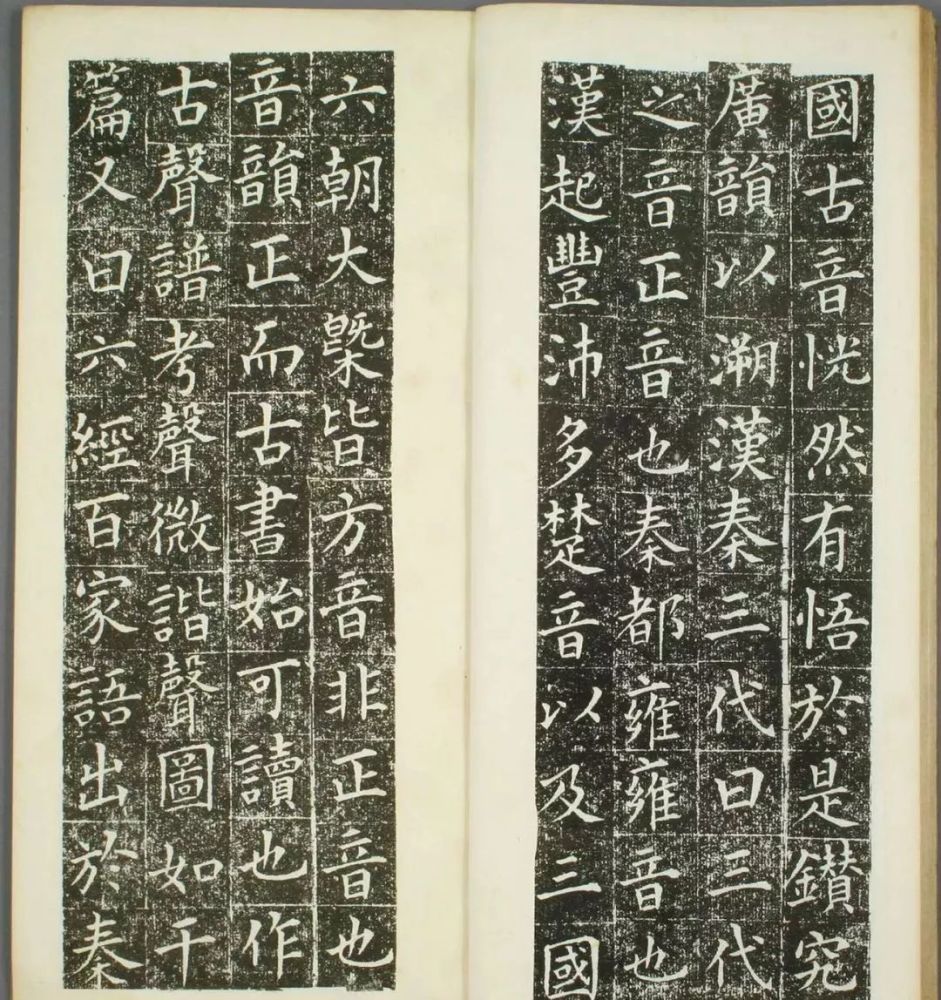 國古音恍然有悟於是鑽究
廣韻以溯漢秦三代曰三代
之音正音也秦都雍雍音也
漢起豐沛多楚音以及三國
六朝大槩皆方音非正音也
音韻正而古書始可讀也作
古聲譜考聲微諧聲圖如干
篇又曰六經百家語出於秦